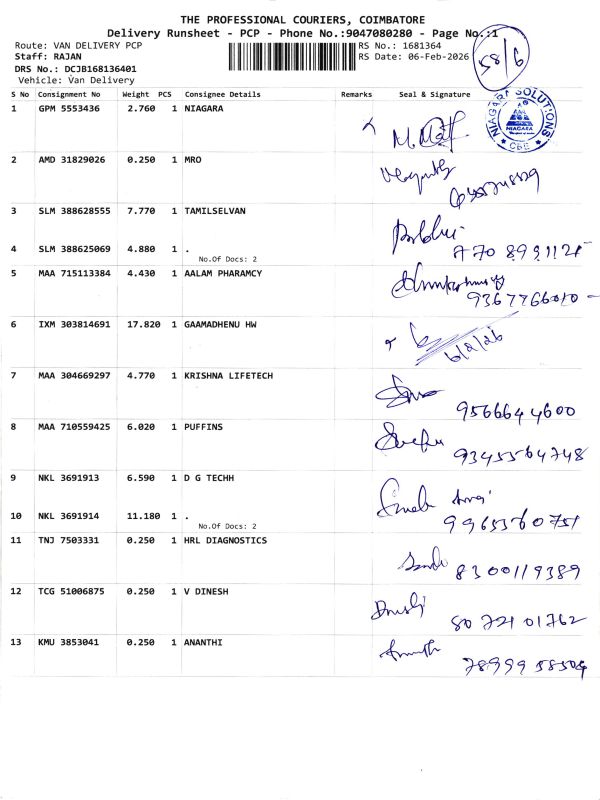 THE PROFESSIONAL COURIERS, COIMBATORE
Delivery Runsheet - PCP - Phone No.:9047080280 - Page No.:1
Route: VAN DELIVERY PCP RS No.: 1681364
Staff: RAJAN RS Date: 06-Feb-2026
58/6
DRS No.: DCJB168136401
Vehicle: Van Delivery
S No Consignment No Weight PCS Consignee Details Remarks Seal & Signature
NIAGARA SOLUTIONS
NIAGARA
* CBE *
1 GPM 5553436 2.760 1 NIAGARA
2 AMD 31829026 0.250 1 MRO
3 SLM 388628555 7.770 1 TAMILSELVAN
4 SLM 388625069 4.880 1 .
No.Of Docs: 2
5 MAA 715113384 4.430 1 AALAM PHARAMCY
6 IXM 303814691 17.820 1 GAAMADHENU HW
6/2/26
7 MAA 304669297 4.770 1 KRISHNA LIFETECH
9566644600
8 MAA 710559425 6.020 1 PUFFINS
9345564748
9 NKL 3691913 6.590 1 D G TECHH
10 NKL 3691914 11.180 1 .
No.Of Docs: 2
9965360751
11 TNJ 7503331 0.250 1 HRL DIAGNOSTICS
8300119389
12 TCG 51006875 0.250 1 V DINESH
80721 01762
13 KMU 3853041 0.250 1 ANANTHI
78999 58504